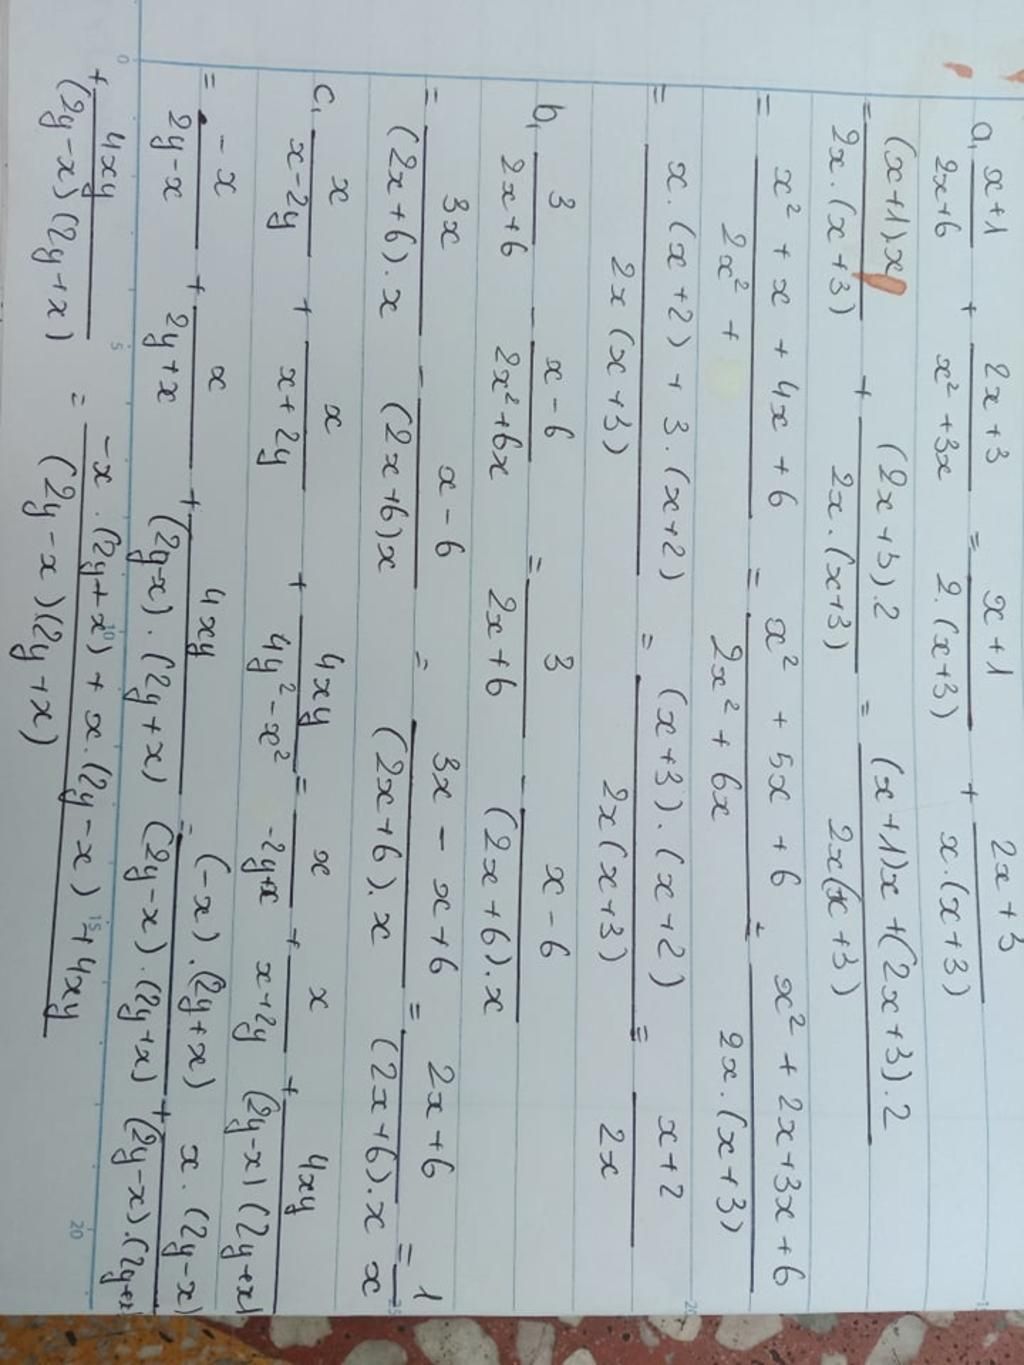 a, x+1/2x+6 + 2x+3/x²+3x = x+1/2.(x+3) + 2x+3/x.(x+3)
= (x+1).x/2x.(x+3) + (2x+3).2/2x.(x+3) = (x+1)x+(2x+3).2/2x(x+3)
= x²+x+4x+6/2x²+ = x²+5x+6/2x²+6x = x²+2x+3x+6/2x.(x+3)
= x.(x+2)+3.(x+2)/2x(x+3) = (x+3).(x+2)/2x(x+3) = x+2/2x
b, 3/2x+6 - x-6/2x²+6x = 3/2x+6 - x-6/(2x+6).x
= 3x/(2x+6).x - x-6/(2x+6)x = 3x-x+6/(2x+6).x = 2x+6/(2x+6).x = 1/x
c, x/x-2y + x/x+2y + 4xy/4y²-x² = x/-2y+x + x/x+2y + 4xy/(2y-x)(2y+x)
= -x/2y-x + x/2y+x + 4xy/(2y-x).(2y+x) = (-x).(2y+x)/(2y-x).(2y+x) + x.(2y-x)/(2y-x).(2y+x)
+ 4xy/(2y-x)(2y+x) = -x.(2y+x)+x.(2y-x)+4xy/(2y-x)(2y+x)
0
5
10
15
20